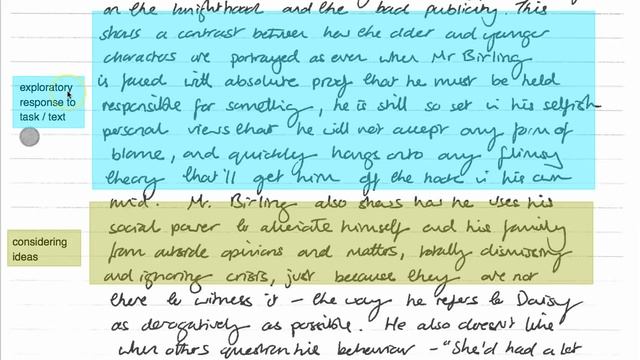 on the knighthood and the bad publicity. This
shows a contrast between how the older and younger
characters are portrayed as even when Mr Birling
is faced with absolute proof that he must be held
responsible for something, he is still so set in his selfish
personal views that he will not accept any form of
blame, and quickly hangs onto any flimsy
theory that'll get him off the hook in his own
mind. Mr. Birling also shows how he uses his
social power to alleviate himself and his family
from outside opinions and matters, totally dismissing
and ignoring crisis, just because they are not
there to witness it – the way he refers to Daisy
as derogatively as possible. He also doesn't like
when others question his behaviour – "She'd had a lot
exploratory
response to
task / text
considering
ideas